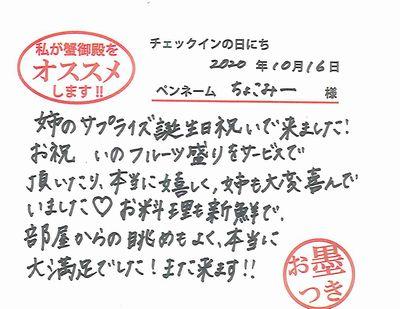 私が蟹御殿を
オススメ
します!!
チェックインの日にち
2020 年 10月 16日
ペンネーム ちょこみー 様
姉のサプライズ誕生日祝いで来ました!
お祝 いのフルーツ盛りをサービスで
頂いたり、本当に嬉しく、姉も大変喜んで
いました♡ お料理も新鮮で、
部屋からの眺めもよく、本当に
大満足でした!また来ます!!
お墨
つき